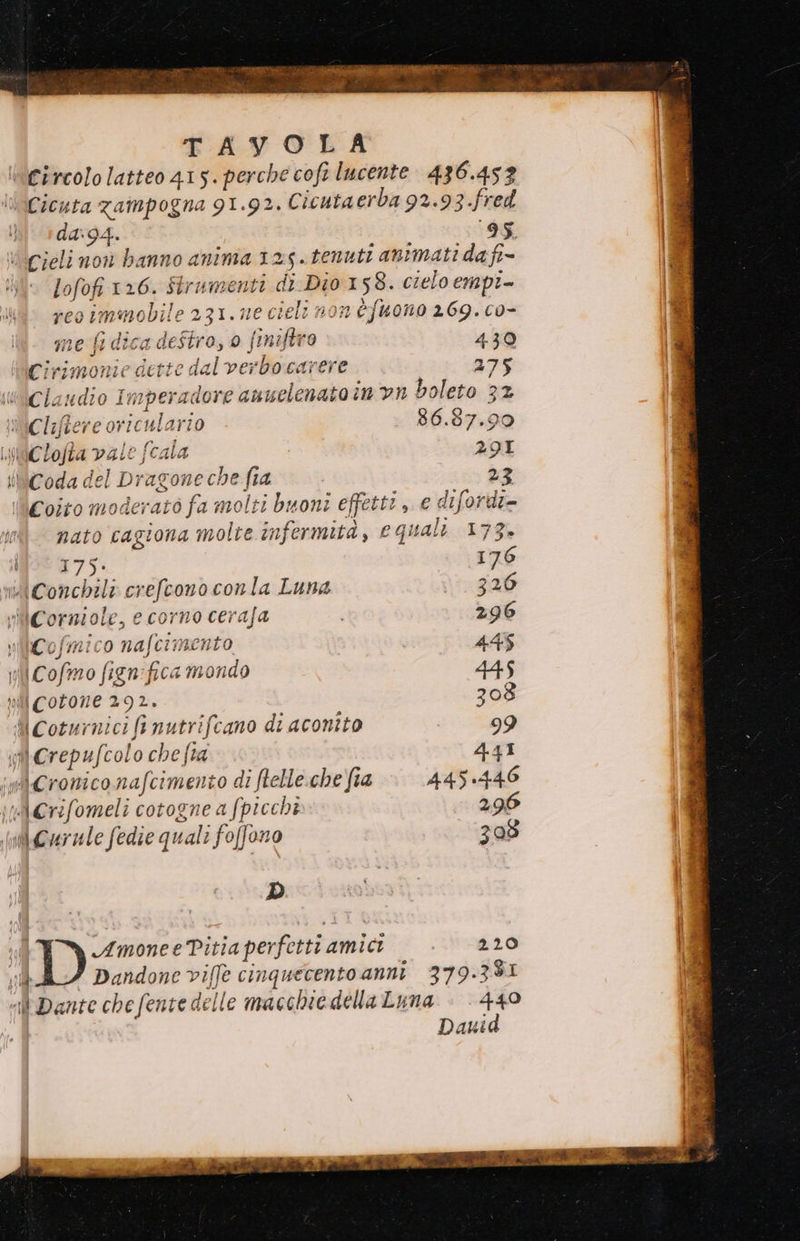 TAVOLA
Circolo latteo 415. perche cosi lucente 436.452
Cicuta zampogna 91.92. Cicuta erba 92.93. fred
da. 94. 95.
Cieli non hanno anima 125. tenuti animati da fi-
losofi 126. Strumenti di Dio 158. cielo empi-
reo immobile 231. ne cieli non è suono 269. co-
me si dica destro, o sinistro 430
Cirimonie dette dal verbo carere 275
Claudio Imperadore auuelenato in vn boleto 32
Clistere oriculario 86.87.90
Clostia vale scala 291
Coda del Dragone che sia 23
Coito moderato fa molti buoni effetti, e disordi-
nato cagiona molte infermità, e quali 173.
175. 176
Conchili crescono con la Luna 326
Corniole, e corno cerasa 296
Cosmico nascimento 445
Cosmo significa mondo 445
Cotone 292. 308
Coturnici si nutriscano di aconito 99
Crepuscolo che sia 441
Cronico nascimento di stelle che sia 445.446
Crisomeli cotogne a spicchi 296
Curule sedie quali fossono 308
D
DAmone e Pitia perfetti amici 220
Dandone visse cinquecento anni 379.381
Dante che sente delle macchie della Luna 440
Dauid